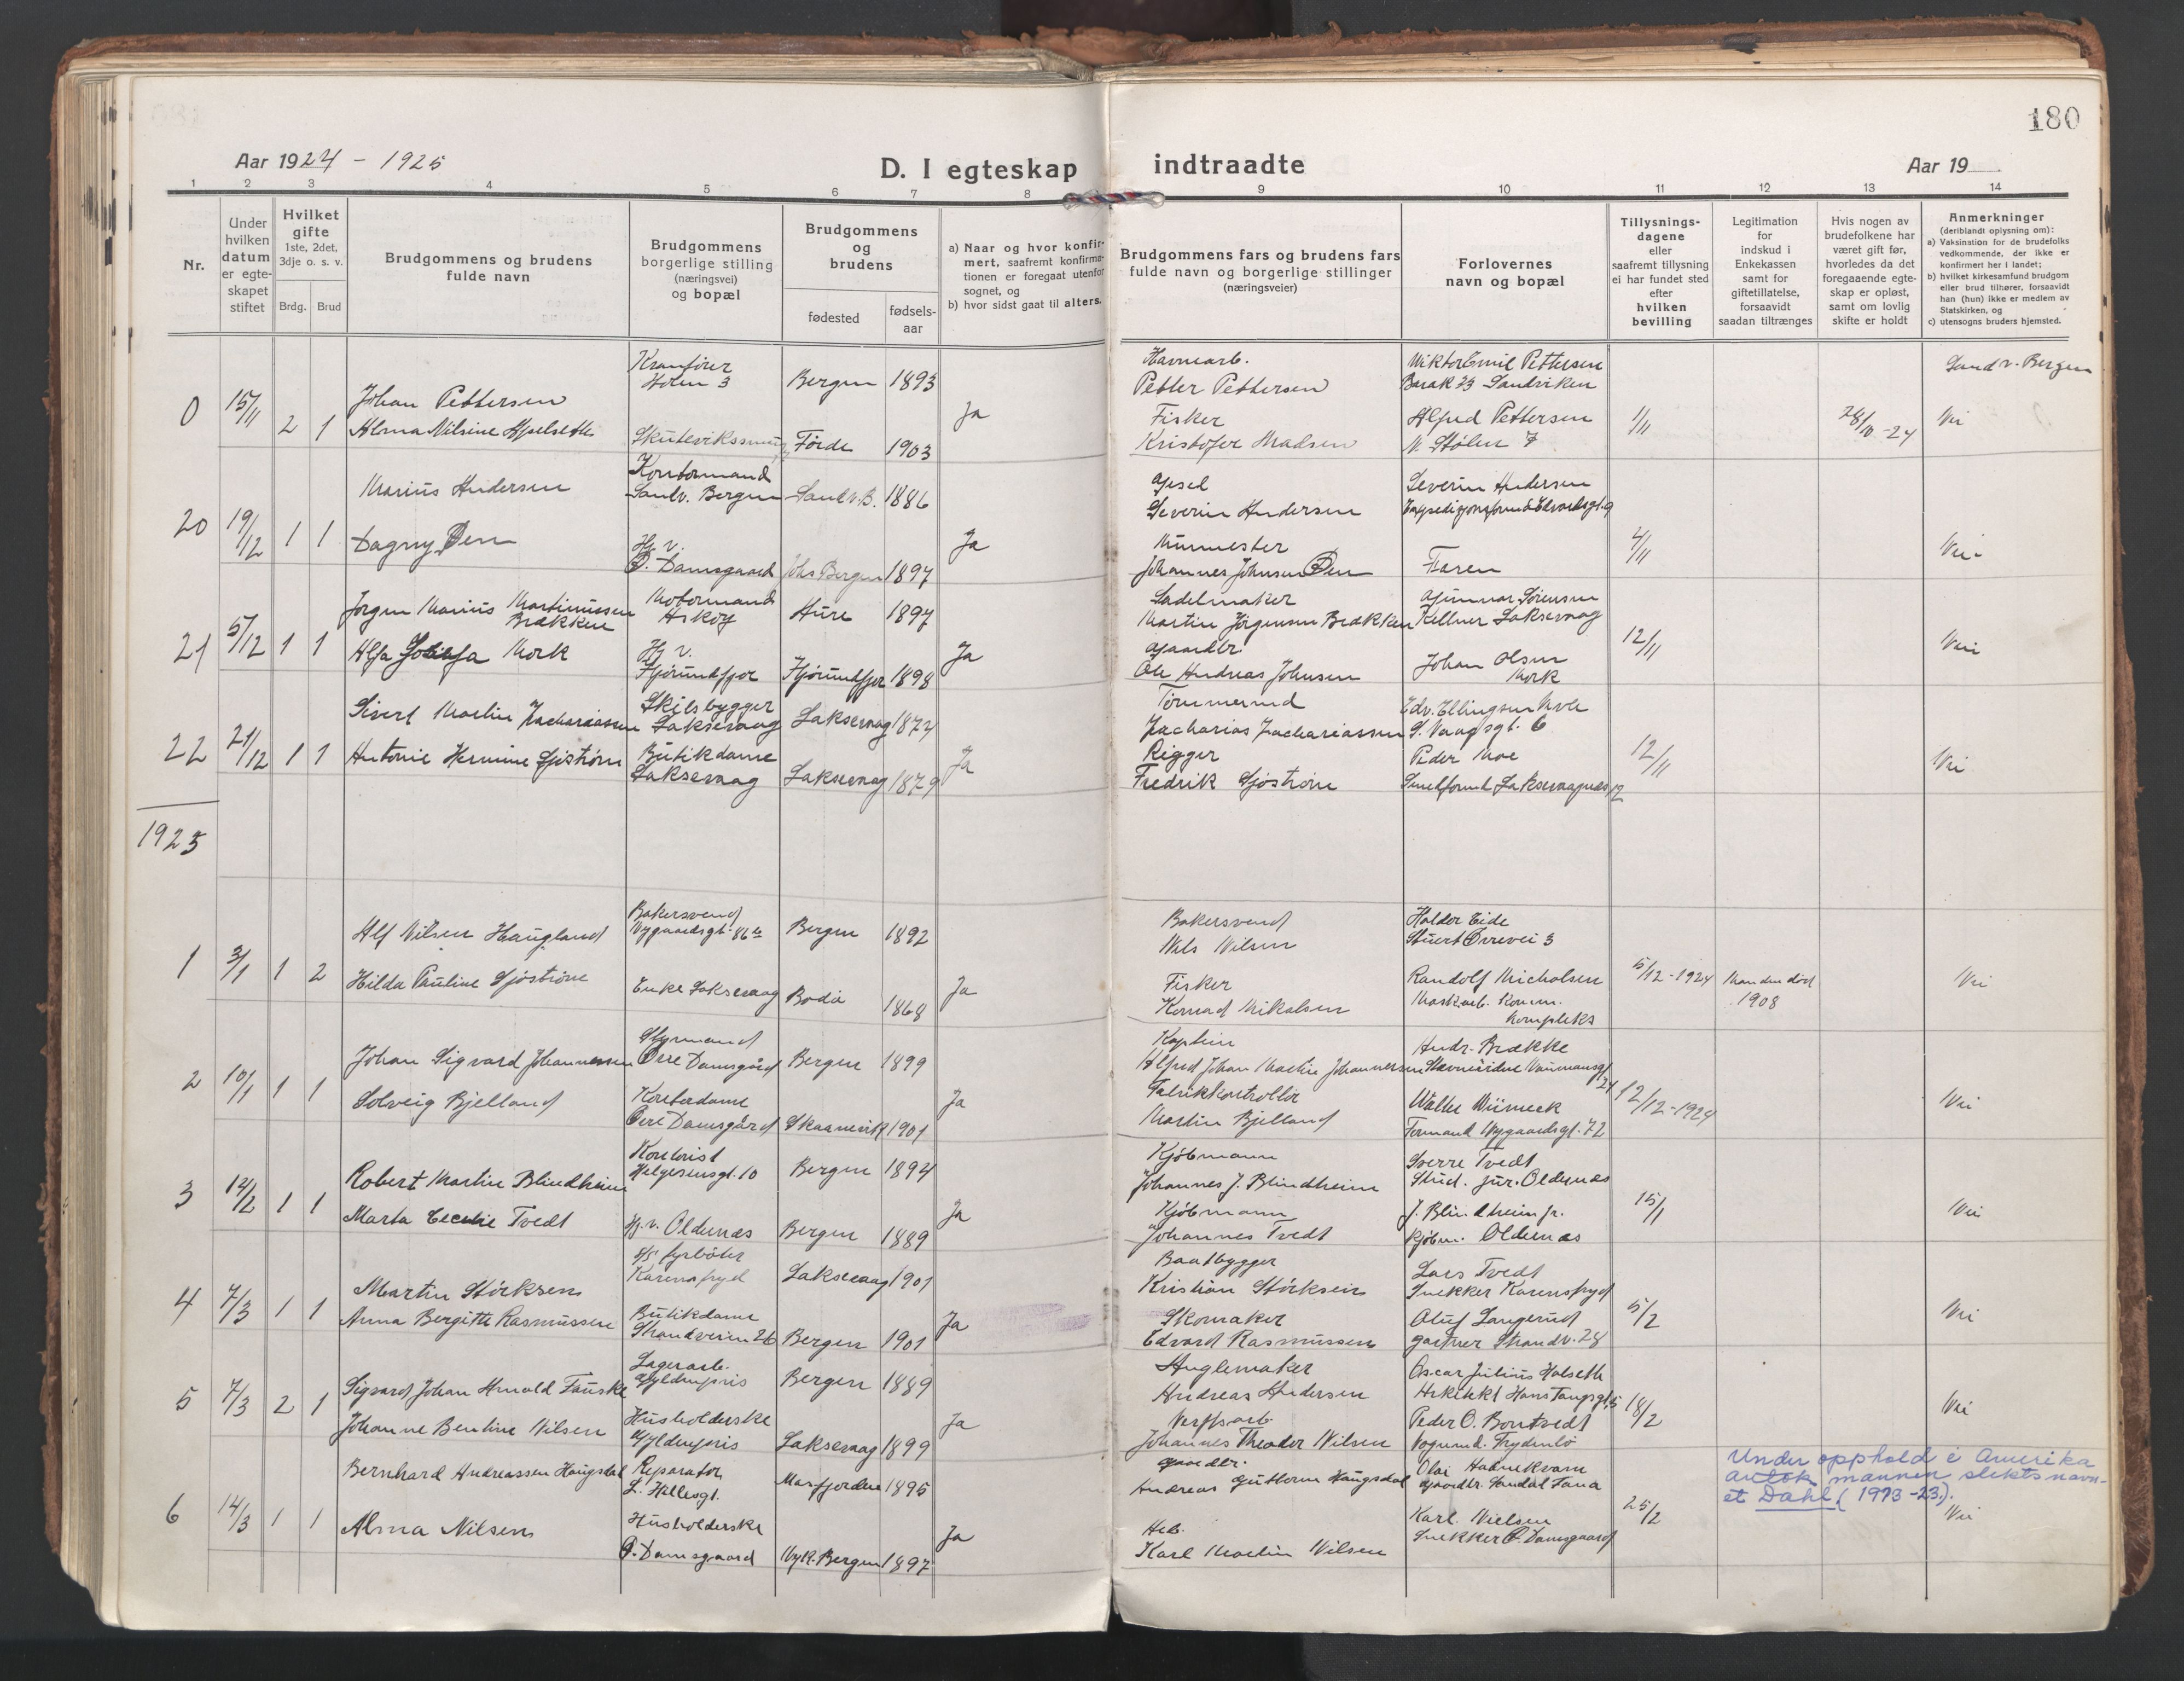 180
Aar 1924 - 1925
D. I egteskap indtraadte
Aar 19
1 2 3 4 5 6 7 8 9 10 11 12 13 14
Nr.
Under hvilken datum er egte-skapet stiftet
Hvilket gifte
1ste, 2det, 3dje o. s. v.
Brdg. Brud
Brudgommens og brudens fulde navn
Brudgommens borgerlige stilling (næringsvei) og bopæl
Brudgommens og brudens
fødested
fødsels-aar
a) Naar og hvor konfir-mert, saafremt konfirma-tionen er foregaat utenfor sognet, og
b) hvor sidst gaat til alters.
Brudgommens fars og brudens fars fulde navn og borgerlige stillinger (næringsveier)
Forlovernes navn og bopæl
Tillysnings-dagene eller saafremt tillysning ei har fundet sted efter hvilken bevilling
Legitimation for indskud i Enkekassen samt for giftetillatelse, forsaavidt saadan tiltrænges
Hvis nogen av brudefolkene har været gift før, hvorledes da det foregaaende egte-skap er opløst, samt om lovlig skifte er holdt
Anmerkninger (deriblandt oplysning om):
a) Vaksination for de brudefolks vedkommende, der ikke er konfirmert her i landet;
b) hvilket kirkesamfund brudgom eller brud tilhører, forsaavidt han (hun) ikke er medlem av Statskirken, og
c) utensogns bruders hjemsted.
Kranfører Havnearb. Wiktor Emil Pettersen Sandv. Bergen
Johan Pettersen Holen 3 Bergen 1893 Petter Pettersen Barak 23 Sandviken
0 15/11 2 1 Ja Fisker Alfred Pettersen 1/11 28/10-24 Vei
Alma Nilsine Hjelseth Førde 1903 Kristofer Madsen N. Stølen 7
Kontormand Severin Andersen
Marius Andersen Sandv. Bergen Sandv. B. 1886 Severin Andersen
20 19/12 1 1 Dagny Øen Hj. v. Ja Murmester 4/11 Vei
Ø. Damsgaard Johs Bergen 1897 Johannes Johnsen Øen Faren
Jørgen Marius Martinussen Brækken Motormand Askøy 1897 Sadelmaker Gunnar Sørensen
Martin Jørgensen Brækken Kellner Laksevaag
21 5/12 1 1 Mork Hj v. Ja Gaardbr. Johan Olsen Mork 12/11 Vei
Hjørundfjor Hjørundfjor 1898 Ole Andreas Johnsen
Sivert Martin Zachariassen Skibsbygger Laksevaag Laksevaag 1874 Tømmermd Edv. Ellingsen
Zacharias Zachariassen S. Vaagsgt. 6
22 21/12 1 1 Antonie Hermine Sjøstrøm Butikdame Ja Rigger Peder Moe 12/11 Vei
Laksevaag Laksevaag 1879 Fredrik Sjøstrøm
1925
Alf Nilsen Haugland Bakersvend Nygaardsgt. 86 Bergen 1892 Bakersvend Halder Eide
Nils Nilsen 3
1 3/1 1 2 Hilda Pauline Sjøstrøm Enke Laksevaag Bodø 1868 Ja Fisker Randolf Nicholsen 5/12-1924 Manden død 1908 Vei
Konrad Mikalsen Maskarb. Komm. Kompleks
Johan Sigvard Johannessen Styrmand Øvre Damsgård Bergen 1899 Kaptein Andr. Brække
Alfred Johan Martin Johannessen
2 10/1 1 1 Solveig Bjelland Kontordame Øvre Damsgård Skaanevik 1901 Ja Fabrikkontrollør 12/12-1924 Vei
Martin Bjelland Formand Nygaardsgt. 72
Robert Martin Blindheim Helgesensgt. 10 Bergen 1894 Kjøbmann Sverre Tvedt
Johannes J. Blindheim Stud. jur. Oldernæs
3 14/2 1 1 Marta Cecelie Tvedt Hj. v. Oldernæs Bergen 1889 Ja Kjøbmann J. Blindheim jr. 15/1 Vei
Johannes Tvedt Kjøbm. Oldernæs
Martin Størksen fyrbøter Karensfryd Laksevaag 1901 Baatbygger Lars Tvedt
Kristian Størksen Snekker Karensfryd
4 7/3 1 1 Anna Bergitte Rasmussen Butikdame Strandveien 26 Bergen 1901 Ja Skomaker Oluf Langerud 5/2 Vei
Edvard Rasmussen gartner Strandv. 28
Sigvard Johan Arnold Fauske Lagerarb. Gyldenpris Bergen 1889 Oscar Julius Halseth
Andreas Andersen Arkitekt Hans Tangsgt. 5
5 7/3 2 1 Johanne Bentine Nilsen Husholderske Gyldenpris Laksevaag 1899 Ja Verftsarb. Peder O. Bontvedt 18/2 Vei
Johannes Theodor Nilsen Vognmd. Frydenbø
Bernhard Andreassen Haugsdal Reparatør L. Hillesgt. Masfjorden 1895 Gaardbr. Olai Hannekvam
Andreas Guttorm Haugsdal Gaardbr. Sandal Fana
Under opphold i Amerika antok mannen slektsnavn-et Dahl (1913-23).
6 14/3 1 1 Alma Nilsen Husholderske Ja Karl Nielsen 25/2 Vei
Ø. Damsgaard Nyk. Bergen 1897 Karl Martin Nilsen Snekker Ø. Damsgaard